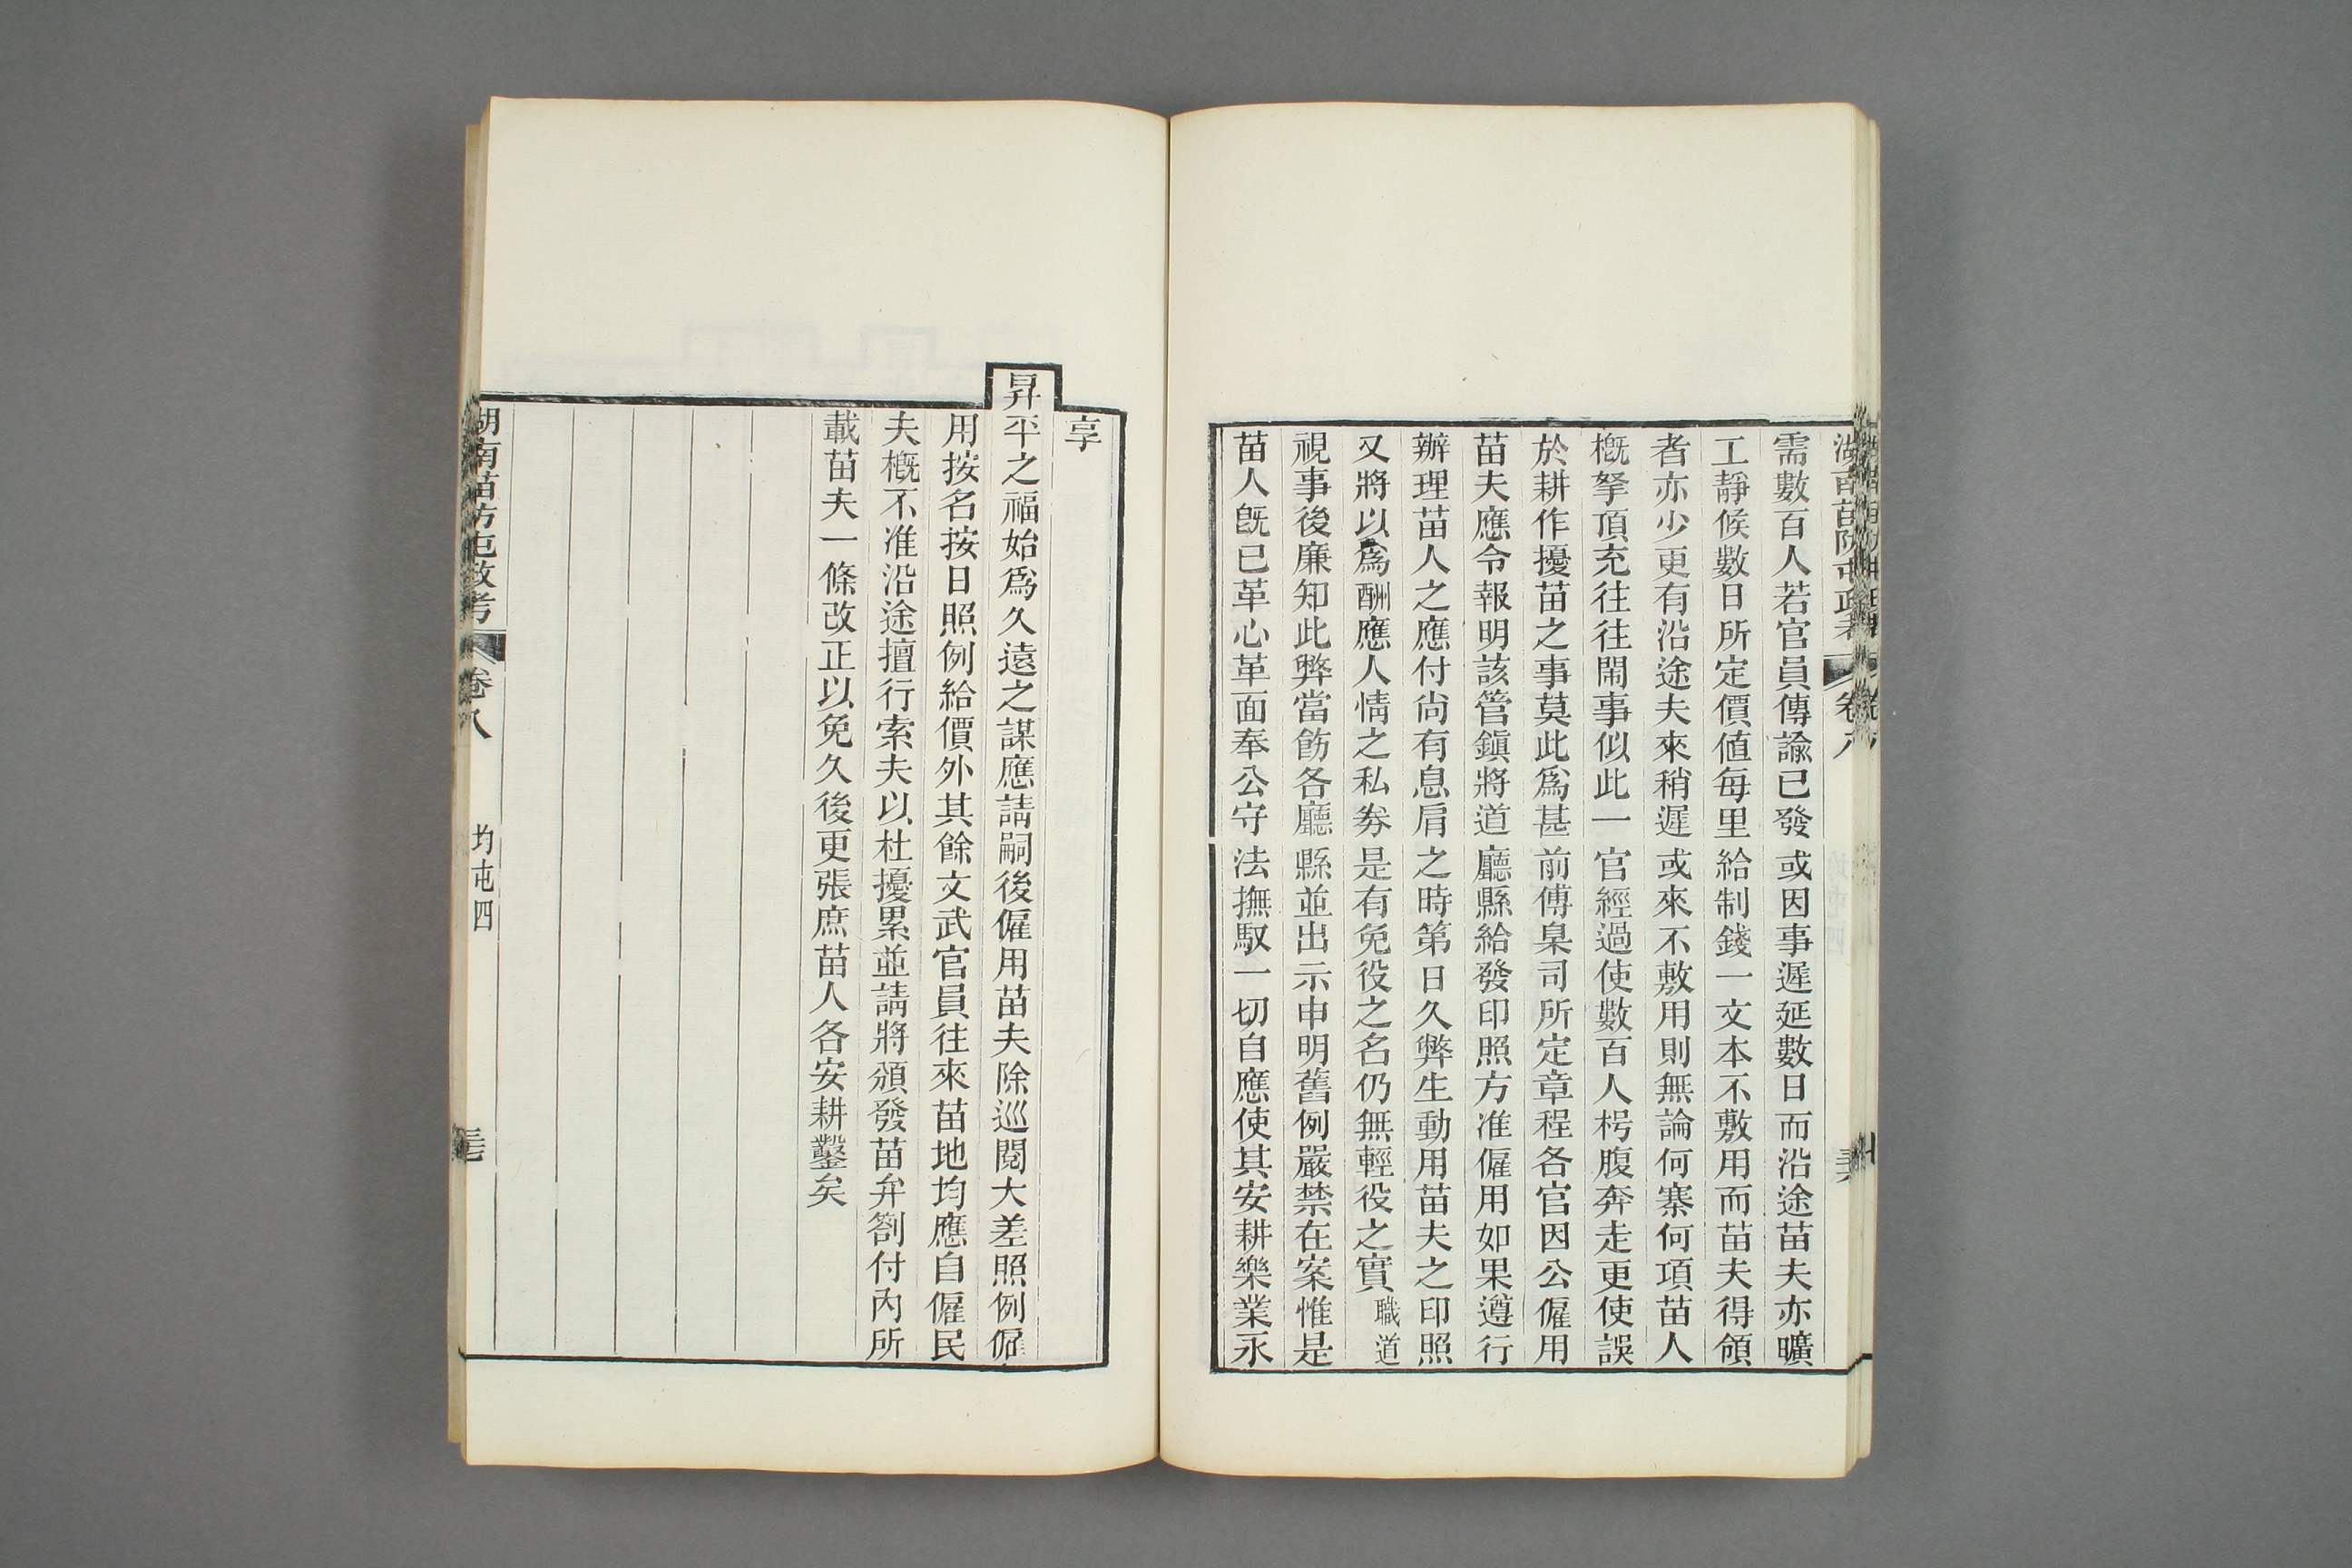 需數百人若官員傳諭已發或因事遲延數日而沿途苗夫亦曠
工靜候數日所定價値每里給制錢一文本不敷用而苗夫得領
者亦少更有沿途夫來稍遲或來不敷用則無論何寨何項苗人
槪拏頂充往往鬧事似此一官經過使數百人枵腹奔走更使誤
於耕作擾苗之事莫此爲甚前傅臬司所定章程各官因公僱用
苗夫應令報明該管鎭將道廳縣給發印照方准僱用如果遵行
辦理苗人之應付尙有息肩之時第日久弊生動用苗夫之印照
又將以爲酬應人情之私劵是有免役之名仍無輕役之實職道
視事後廉知此弊當飭各廳縣並出示申明舊例嚴禁在案惟是
苗人旣已革心革面奉公守法撫馭一切自應使其安耕樂業永
享
昇平之福始爲久遠之謀應請嗣後僱用苗夫除巡閱大差照例僱
用按名按日照例給價外其餘文武官員往來苗地均應自僱民
夫槪不准沿途擅行索夫以杜擾累並請將頒發苗弁劄付內所
載苗夫一條改正以免久後更張庶苗人各安耕鑿矣
湖南苗防屯政考 卷八 均屯四 三七